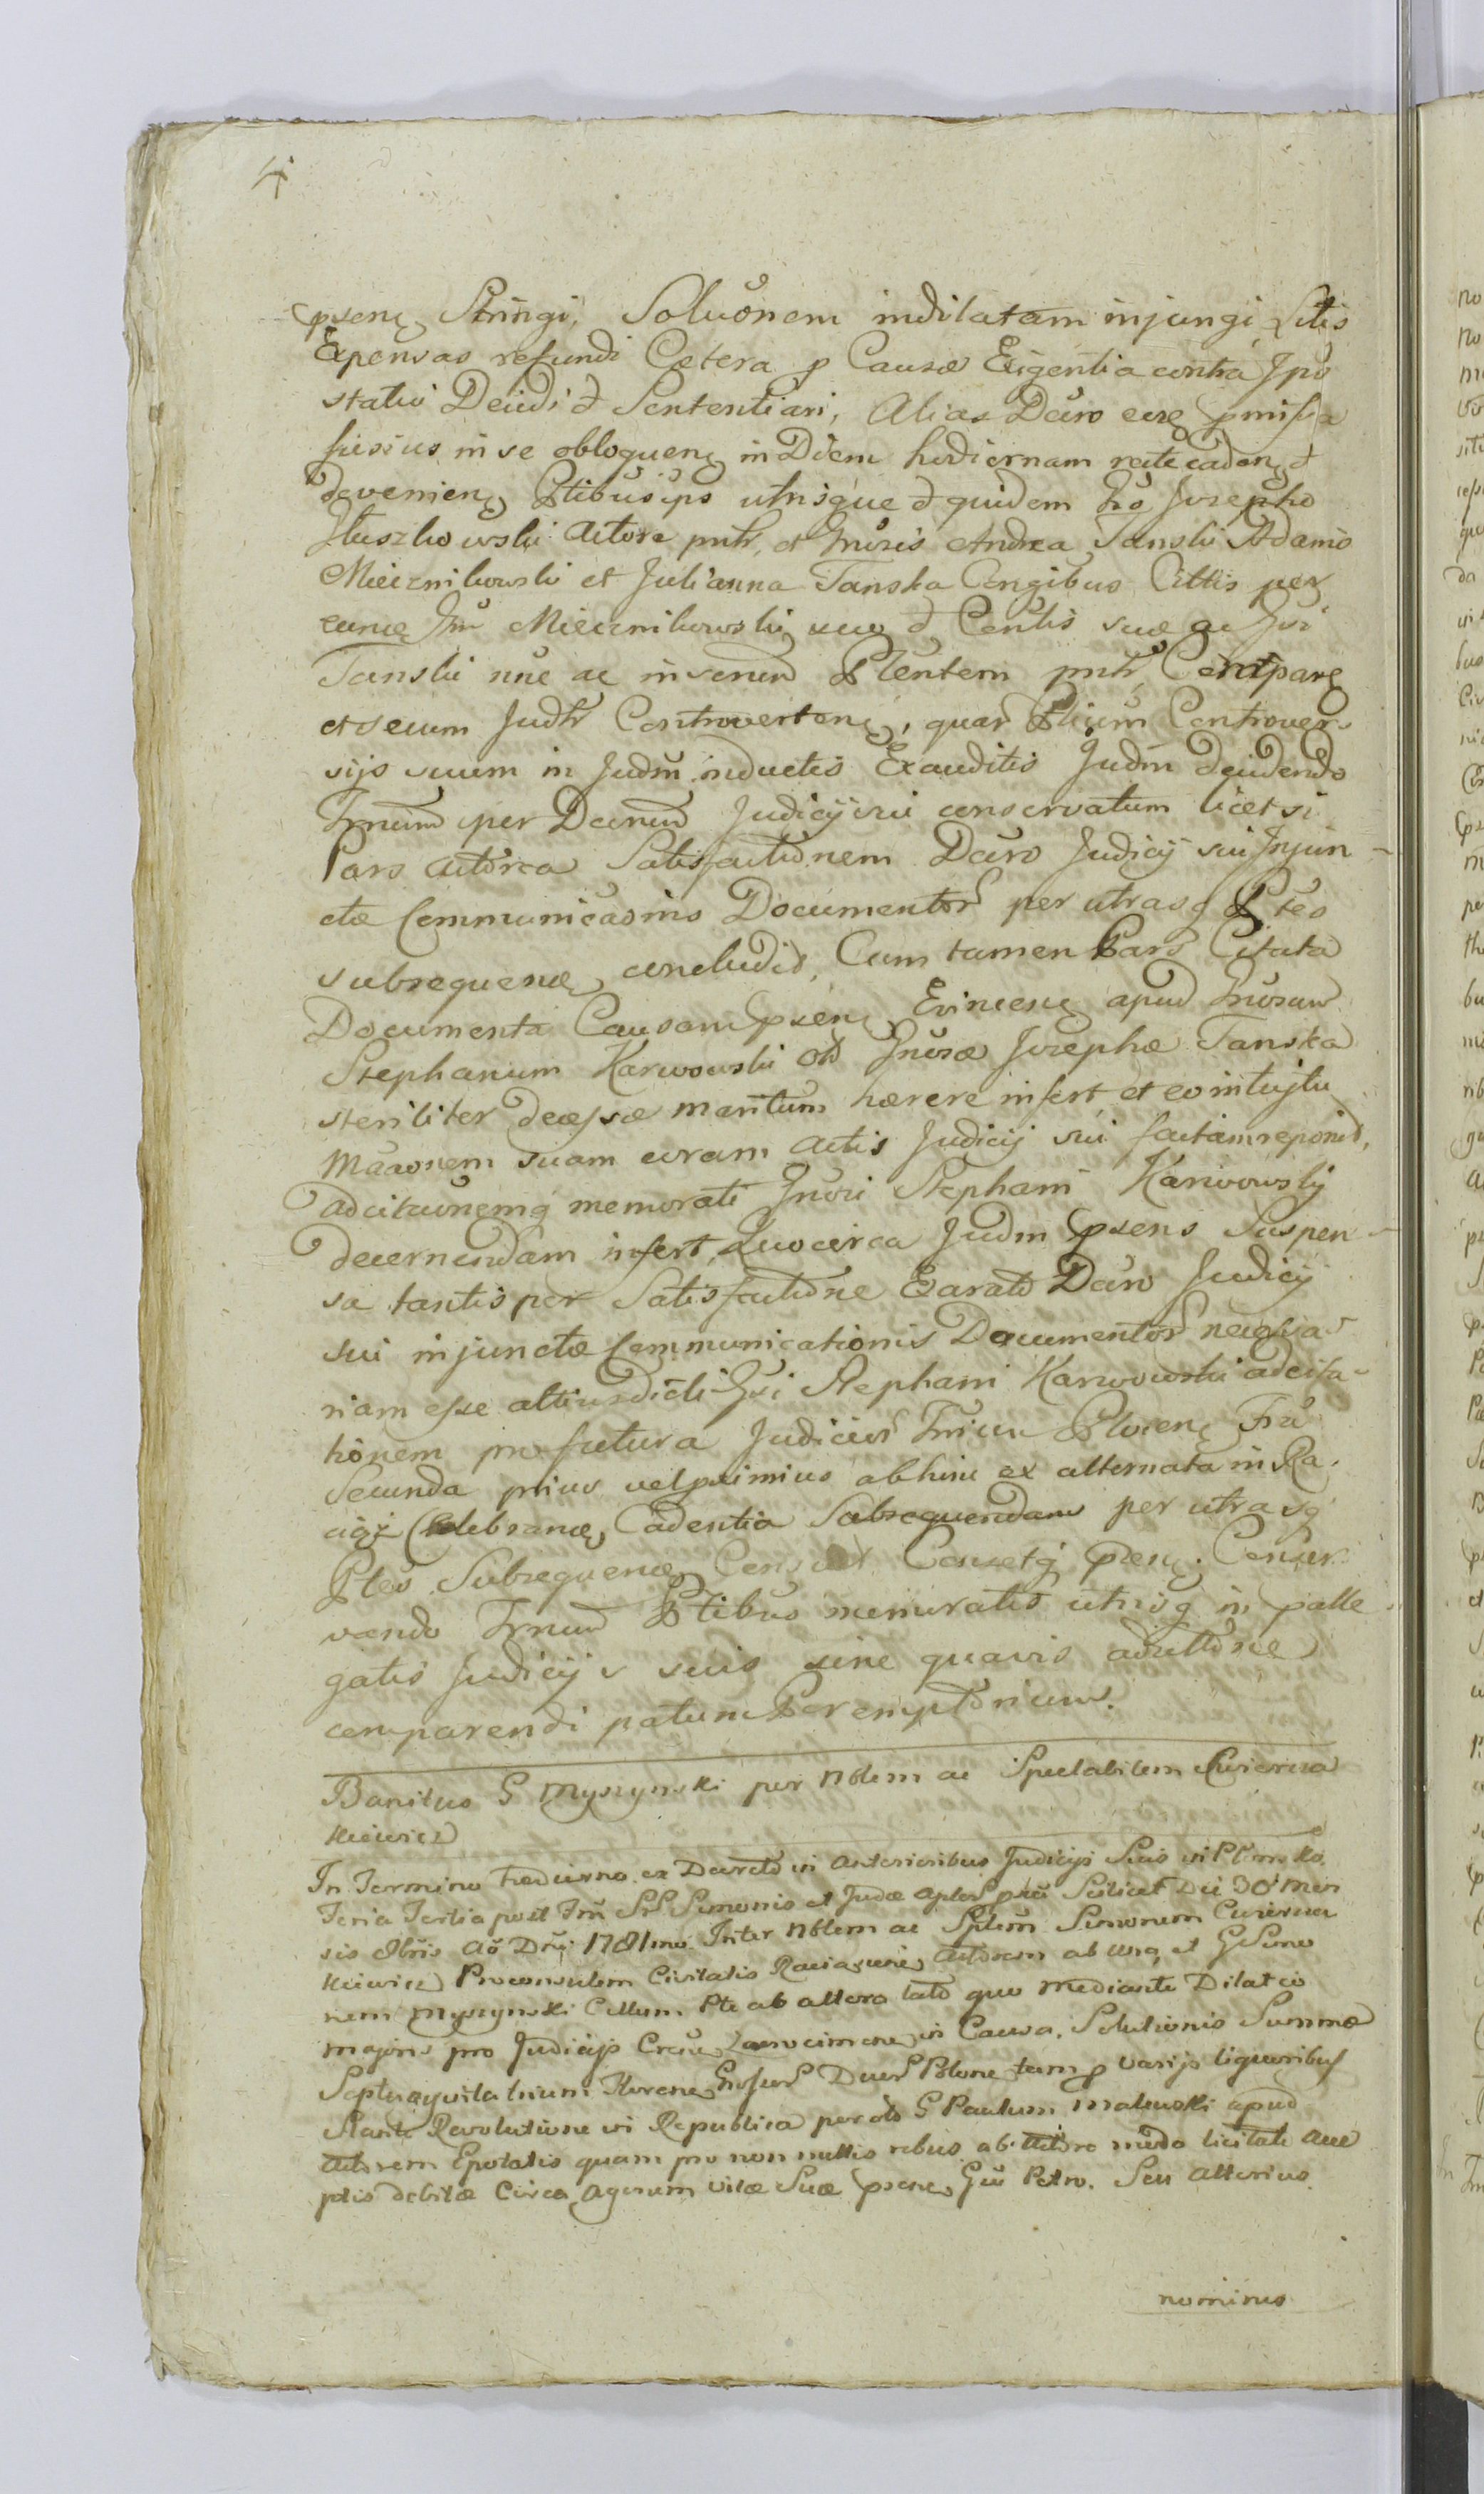 4
psenꝫ Stringi, Soluõnem indilatam injungi Litis
Expensas refundi Cetera ꝑ Causæ Exigentia contra Jpõ
statui Decidi & Sententiari, Alias Dẽro
fusius in se obloquenꝫ in Diem hodiernam rite cadenꝫ &
devenienꝫ Ptibus ips utrisque & quidem Josepho
Actore pntr, et Gnõsis Andrea Tanski Adamo
Mieiznikowski et Julianna Tanska Congibus Cittis per
eunꝫ Gnũ Mieiznikowski suo & Contis suæ ac Gnsi
Tanski nũc ac insenend Ptentem pntr Comparꝫ
et secum Judtr Controvertenꝫ, quar Ptium Controver-
sijs suum in Judm inductis Exauditis Judm decidendo
Trnum per Decnend Judicij sui conservatum licet si
Pars actorea Satisfactiõnem Dẽro Judicij sui Injun-
ctæ Communicaõnis Documentor per utrasq Ptes
subsequenꝫ concludit, Cum tamen Pars Citata
Documenta Causam psenꝫ Evincenꝫ apud Gnõsum
Stephanum Karwowski olĩ Gnõsæ Josephæ Tanska
steriliter decessæ maritum hærere infert et eo intuitu
suam coram Actis Judicij sui factam reponit,
adcitaõnemq memorati Gnõsi Stephani Karwowskij
decernendam infert, Quocirca Judm psens Suspen-
sa tantisper Satisfactiõne Exarato Dẽro Judicij
sui injunctæ Communicationis Documentor necessa-
riam esse altius dicti Gnsi Stephani Karwowski adcita-
tionem pro futura Judicior Trium Plocenꝫ Fra
Secunda prius vel pximius abhinc ex alternata in Ra-
ciąż Celebranꝫ Cadentia Subsequendam per utrasq
Ptes Subsequenꝫ Censuit Censetq psenꝫ. Conser-
vando Trnum Ptibus memoratis utrisq in palle-
gatis Judicijs suis sine quavis aducttõne
comparendi patum Peremptorium.
Banitus G Myszynski per Nblem ac Spectabilem Cwierna
kiewicz
In Termino hodierno ex Decreto in anterioribus Judicijs Suis in
Feria Tertia post Fm SS Simonis et Judæ Aplor Scilicet Die 30 men
sis 8bris Aõ Dni 1781mo Inter Nblem ac Splem Simonem Cwierna
kiewicz Proconsulem Civitatis Raciązenꝫ Actorem ab una et G Simo
nem Myszynski Cittum Pte ab altera lato quo mediante Dilatio
majoris pro Judicijs in Causa. Solutionis Summæ
Septuaginta trium Florenꝫ Polone tam ꝑ varijs liquoribus
Stante Revolutione in Republica per olĩ G Paulum Malewski apud
Actorem Epotatis quam pro non nullis rebus ab Actore licitate acce
ptis debitæ Circa Agonum vitæ Suæ psenꝫ Petro. Seu alterius
nominis